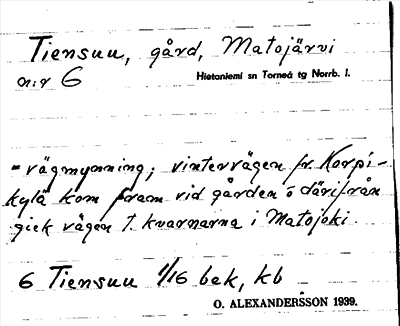 Tiensuu, gård, Matojärvi
n:r 6 Hietaniemi sn Torneå tg Norrb. l.
= vägmynning; vintervägen fr. Korpi-
kylä kom fram vid gården o därifrån
gick vägen t. kvarnarna i Matojoki.
6 Tiensuu 1/16 bek, kb
O. ALEXANDERSSON 1939.